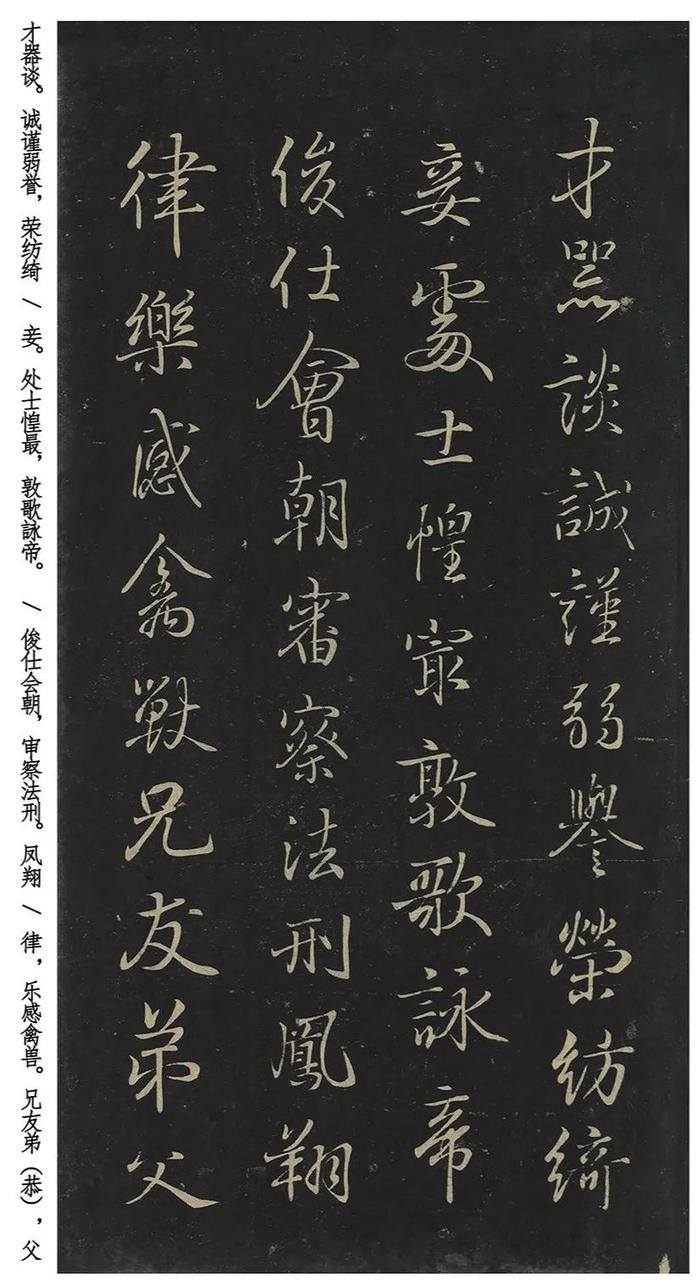 才器談誠謹弱譽榮紡綺
妾處士惶最敦歌詠帝
俊仕會朝審察法刑鳳翔
律樂感禽獸兄友弟父
才器谈。诚谨弱誉，荣纺绮 / 妾。处士惶最，敦歌詠帝。 / 俊仕会朝，审察法刑。凤翔 / 律，乐感禽兽。兄友弟（恭），父